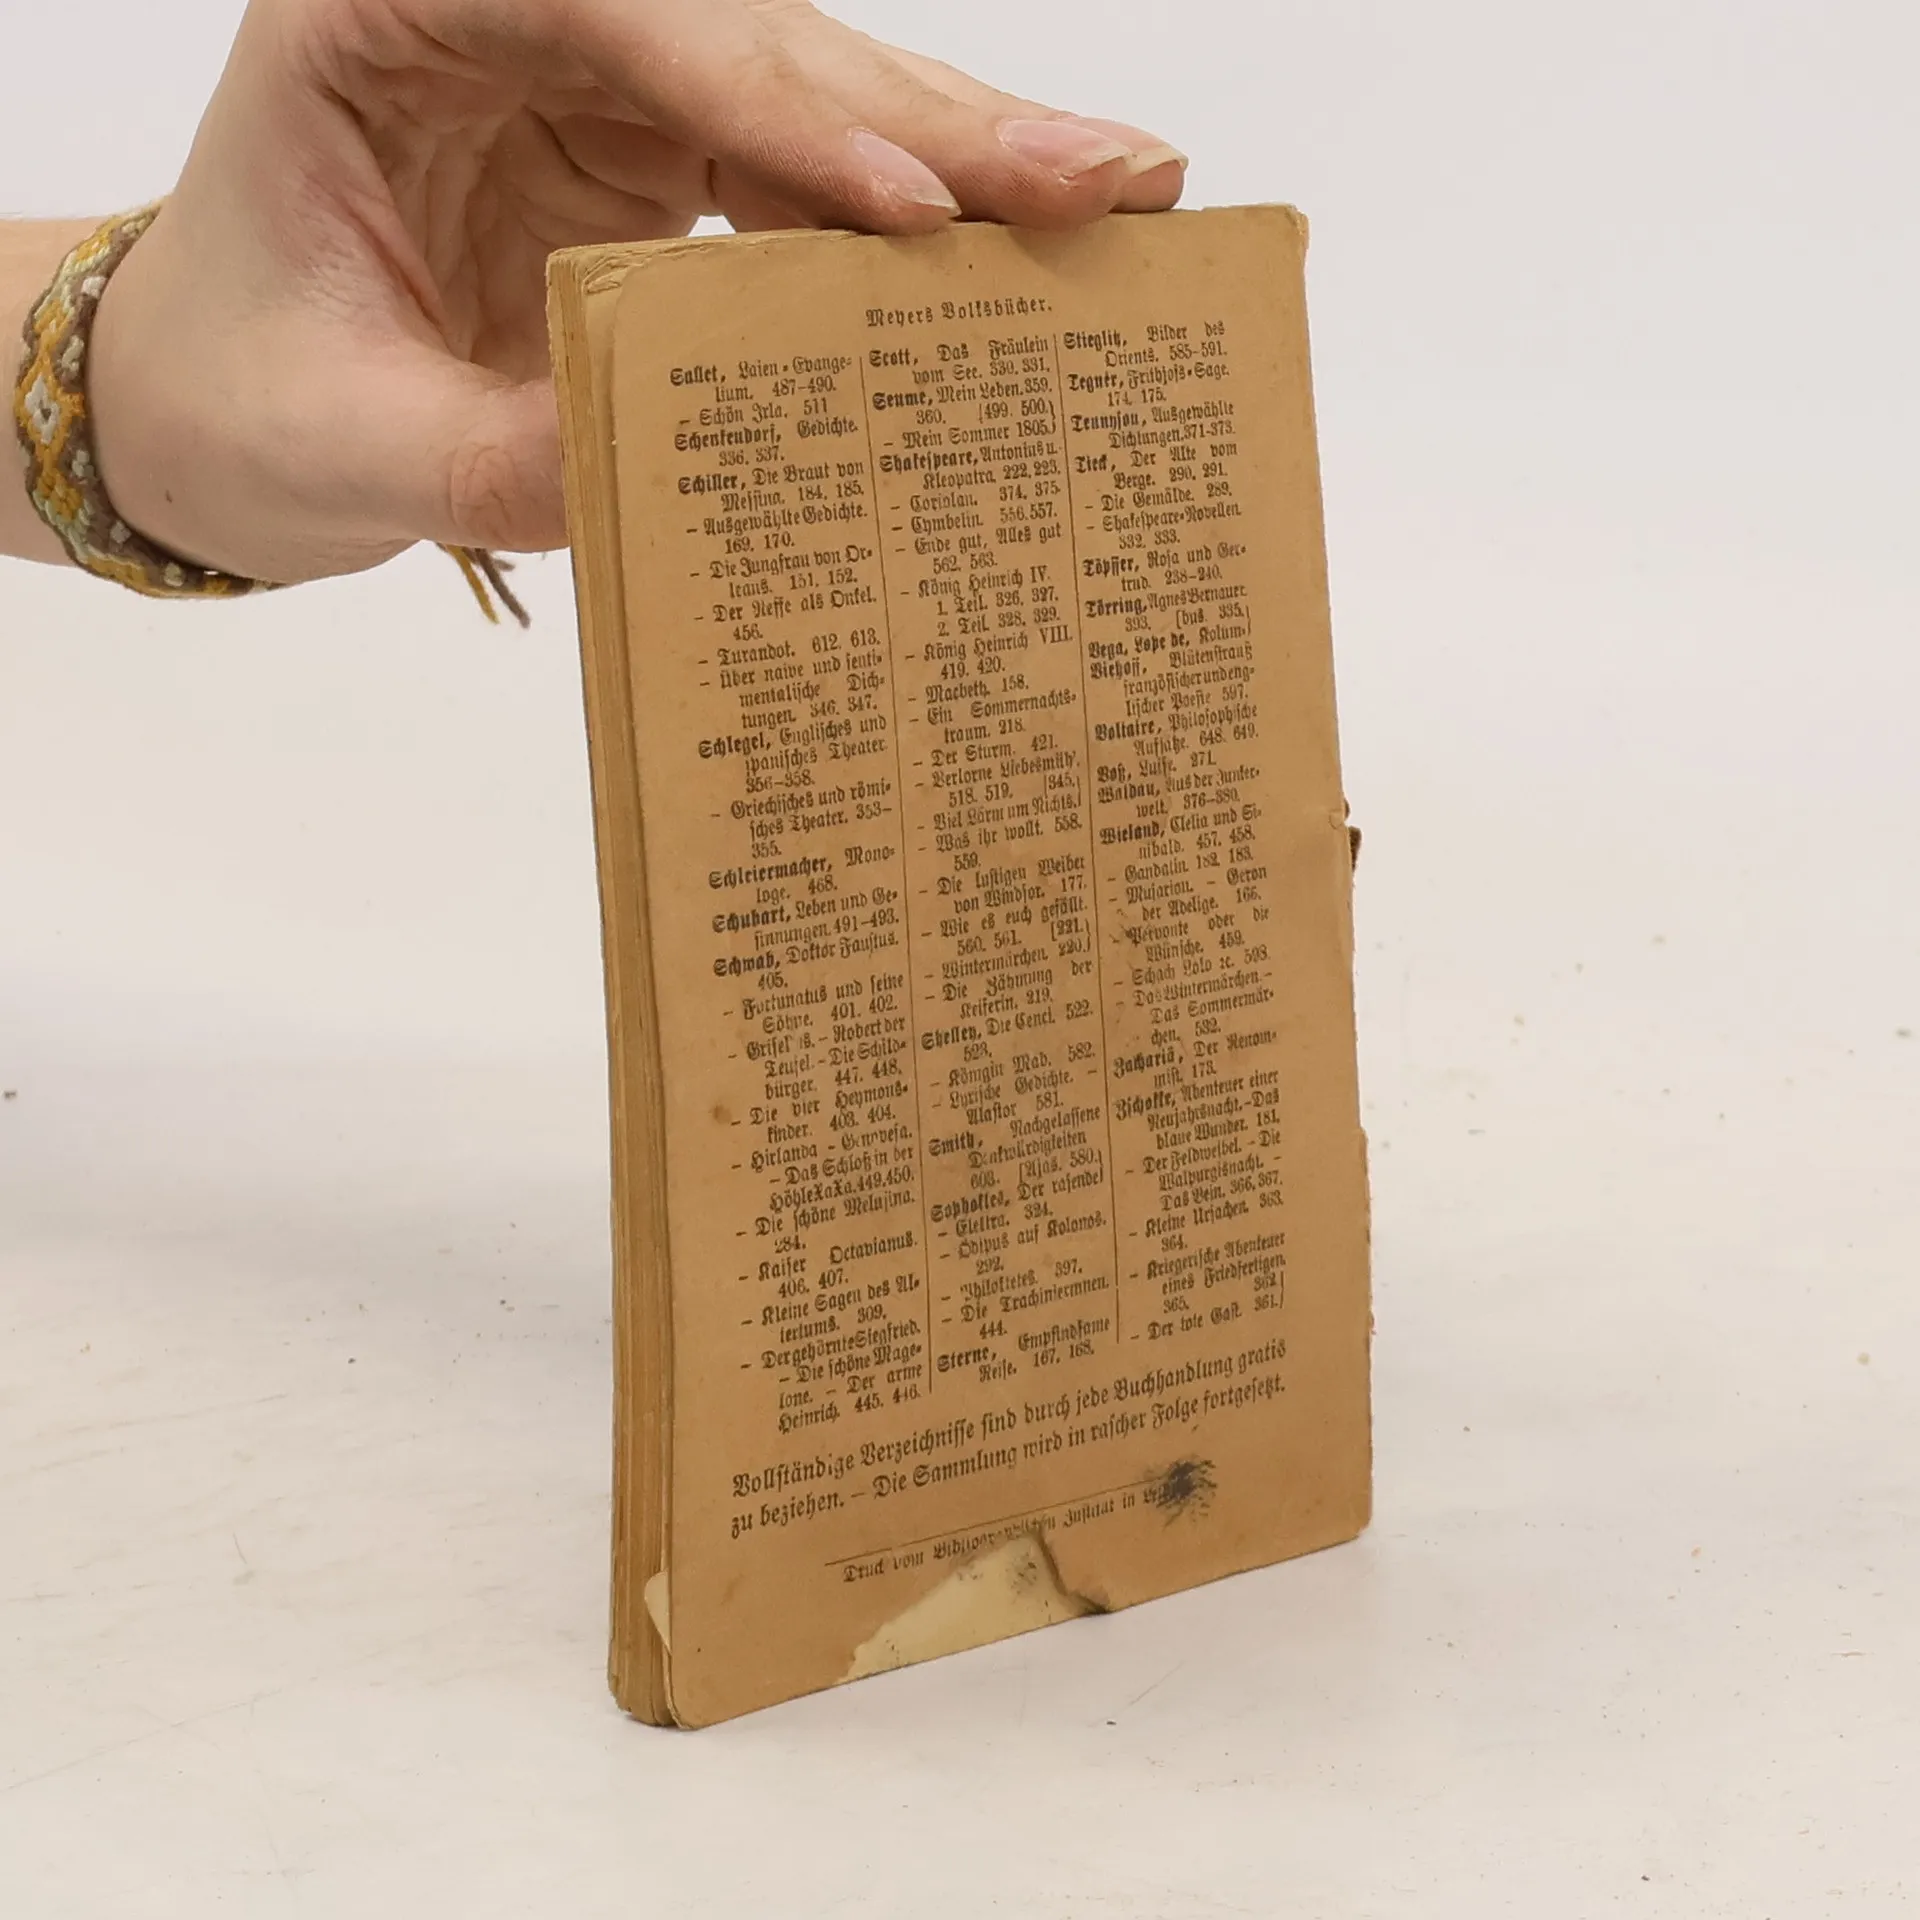 Meyers Volksbücher.
Sallet, Laien-Evange-
lium. 487-490.
- Schön Irla. 511
Schenkendorf, Gedichte.
336. 337.
Schiller, Die Braut von
Messina. 184. 185.
- Ausgewählte Gedichte.
169. 170.
- Die Jungfrau von Or-
leans. 151. 152.
- Der Neffe als Onkel.
456.
- Turandot. 612. 613.
- Über naive und senti-
mentalische Dich-
tungen. 346. 347.
Schlegel, Englisches und
spanisches Theater.
356-358.
- Griechisches und römi-
sches Theater. 353-
355.
Schleiermacher, Mono-
loge. 468.
Schubart, Leben und Ge-
sinnungen. 491-493.
Schwab, Doktor Faustus.
405.
- Fortunatus und seine
Söhne. 401. 402.
- Griseldis. - Robert der
Teufel. - Die Schild-
bürger. 447. 448.
- Die vier Heymons-
kinder. 403. 404.
- Hirlanda - Genovefa.
- Das Schloß in der
Höhle Xa Xa. 449. 450.
- Die schöne Melusina.
284.
- Kaiser Octavianus.
406. 407.
- Kleine Sagen des Al-
tertums. 309.
- Der gehörnte Siegfried.
- Die schöne Mage-
lone. - Der arme
Heinrich. 445. 446.
Scott, Das Fräulein
vom See. 330. 331.
Seume, Mein Leben. 359.
360. [499. 500.]
- Mein Sommer 1805.
Shakespeare, Antonius u.
Kleopatra. 222. 223.
- Coriolan. 374. 375.
- Cymbelin. 556. 557.
- Ende gut, Alles gut
562. 563.
- König Heinrich IV.
1. Teil. 326. 327.
2. Teil. 328. 329.
- König Heinrich VIII.
419. 420.
- Macbeth. 158.
- Ein Sommernachts-
traum. 218.
- Der Sturm. 421.
- Verlorne Liebesmüh'.
518. 519. [345.]
- Viel Lärm um Nichts.
- Was ihr wollt. 558.
559.
- Die lustigen Weiber
von Windsor. 177.
- Wie es euch gefällt.
560. 561. [221.]
- Wintermärchen. 220.
- Die Zähmung der
Keiferin. 219.
Shelley, Die Cenci. 522.
523.
- Königin Mab. 582.
- Lyrische Gedichte. -
Alastor 581.
Smith, Nachgelassene
Denkwürdigkeiten
603. [Ajas. 580.]
Sophokles, Der rasende
- Elektra. 324.
- Ödipus auf Kolonos.
292.
- Philoktetes. 397.
- Die Trachinierinnen.
444.
Sterne, Empfindsame
Reise. 167. 168.
Stieglitz, Bilder des
Orients. 585-591.
Tegnér, Frithjofs-Sage.
174. 175.
Tennyson, Ausgewählte
Dichtungen. 371-373.
Tieck, Der Alte vom
Berge. 290. 291.
- Die Gemälde. 289.
- Shakespeare-Novellen.
332. 333.
Töpffer, Rosa und Ger-
trud. 238-240.
Törring, Agnes Bernauer.
393. [bus. 335.]
Vega, Lope de, Kolum-
Viehoff, Blütenstrauß
französischer und eng-
lischer Poesie 597.
Voltaire, Philosophische
Aufsätze. 648. 649.
Voß, Luise. 271.
Waldau, Aus der Junker-
welt. 376-380.
Wieland, Clelia und Si-
nibald. 457. 458.
- Gandalin. 182. 183.
- Musarion. - Geron
der Adelige. 166.
- Pervonte oder die
Wünsche. 459.
- Schach Lolo ꝛc. 598.
- Das Wintermärchen. -
Das Sommermär-
chen. 532.
Zachariä, Der Renom-
mist. 173.
Zschokke, Abenteuer einer
Neujahrsnacht. - Das
blaue Wunder. 181.
- Der Feldweibel. - Die
Walpurgisnacht. -
Das Bein. 366. 367.
- Kleine Ursachen. 363.
364.
- Kriegerische Abenteuer
eines Friedfertigen.
365. 362.
- Der tote Gast. 361.
Vollständige Verzeichnisse sind durch jede Buchhandlung gratis
zu beziehen. - Die Sammlung wird in rascher Folge fortgesetzt.
Druck vom Bibliographischen Institut in